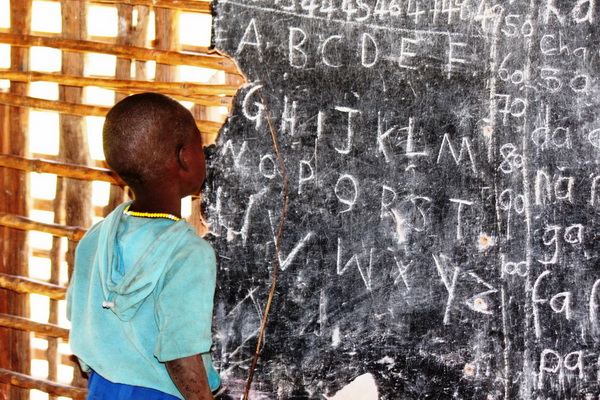 43 44 45 46 47 48 49 50
A B C D E F
G H I J K L M
N O P Q R S T
U V W X Y Z
60
70
80
90
100
ka
cha
sa
da
na
ga
fa
pa